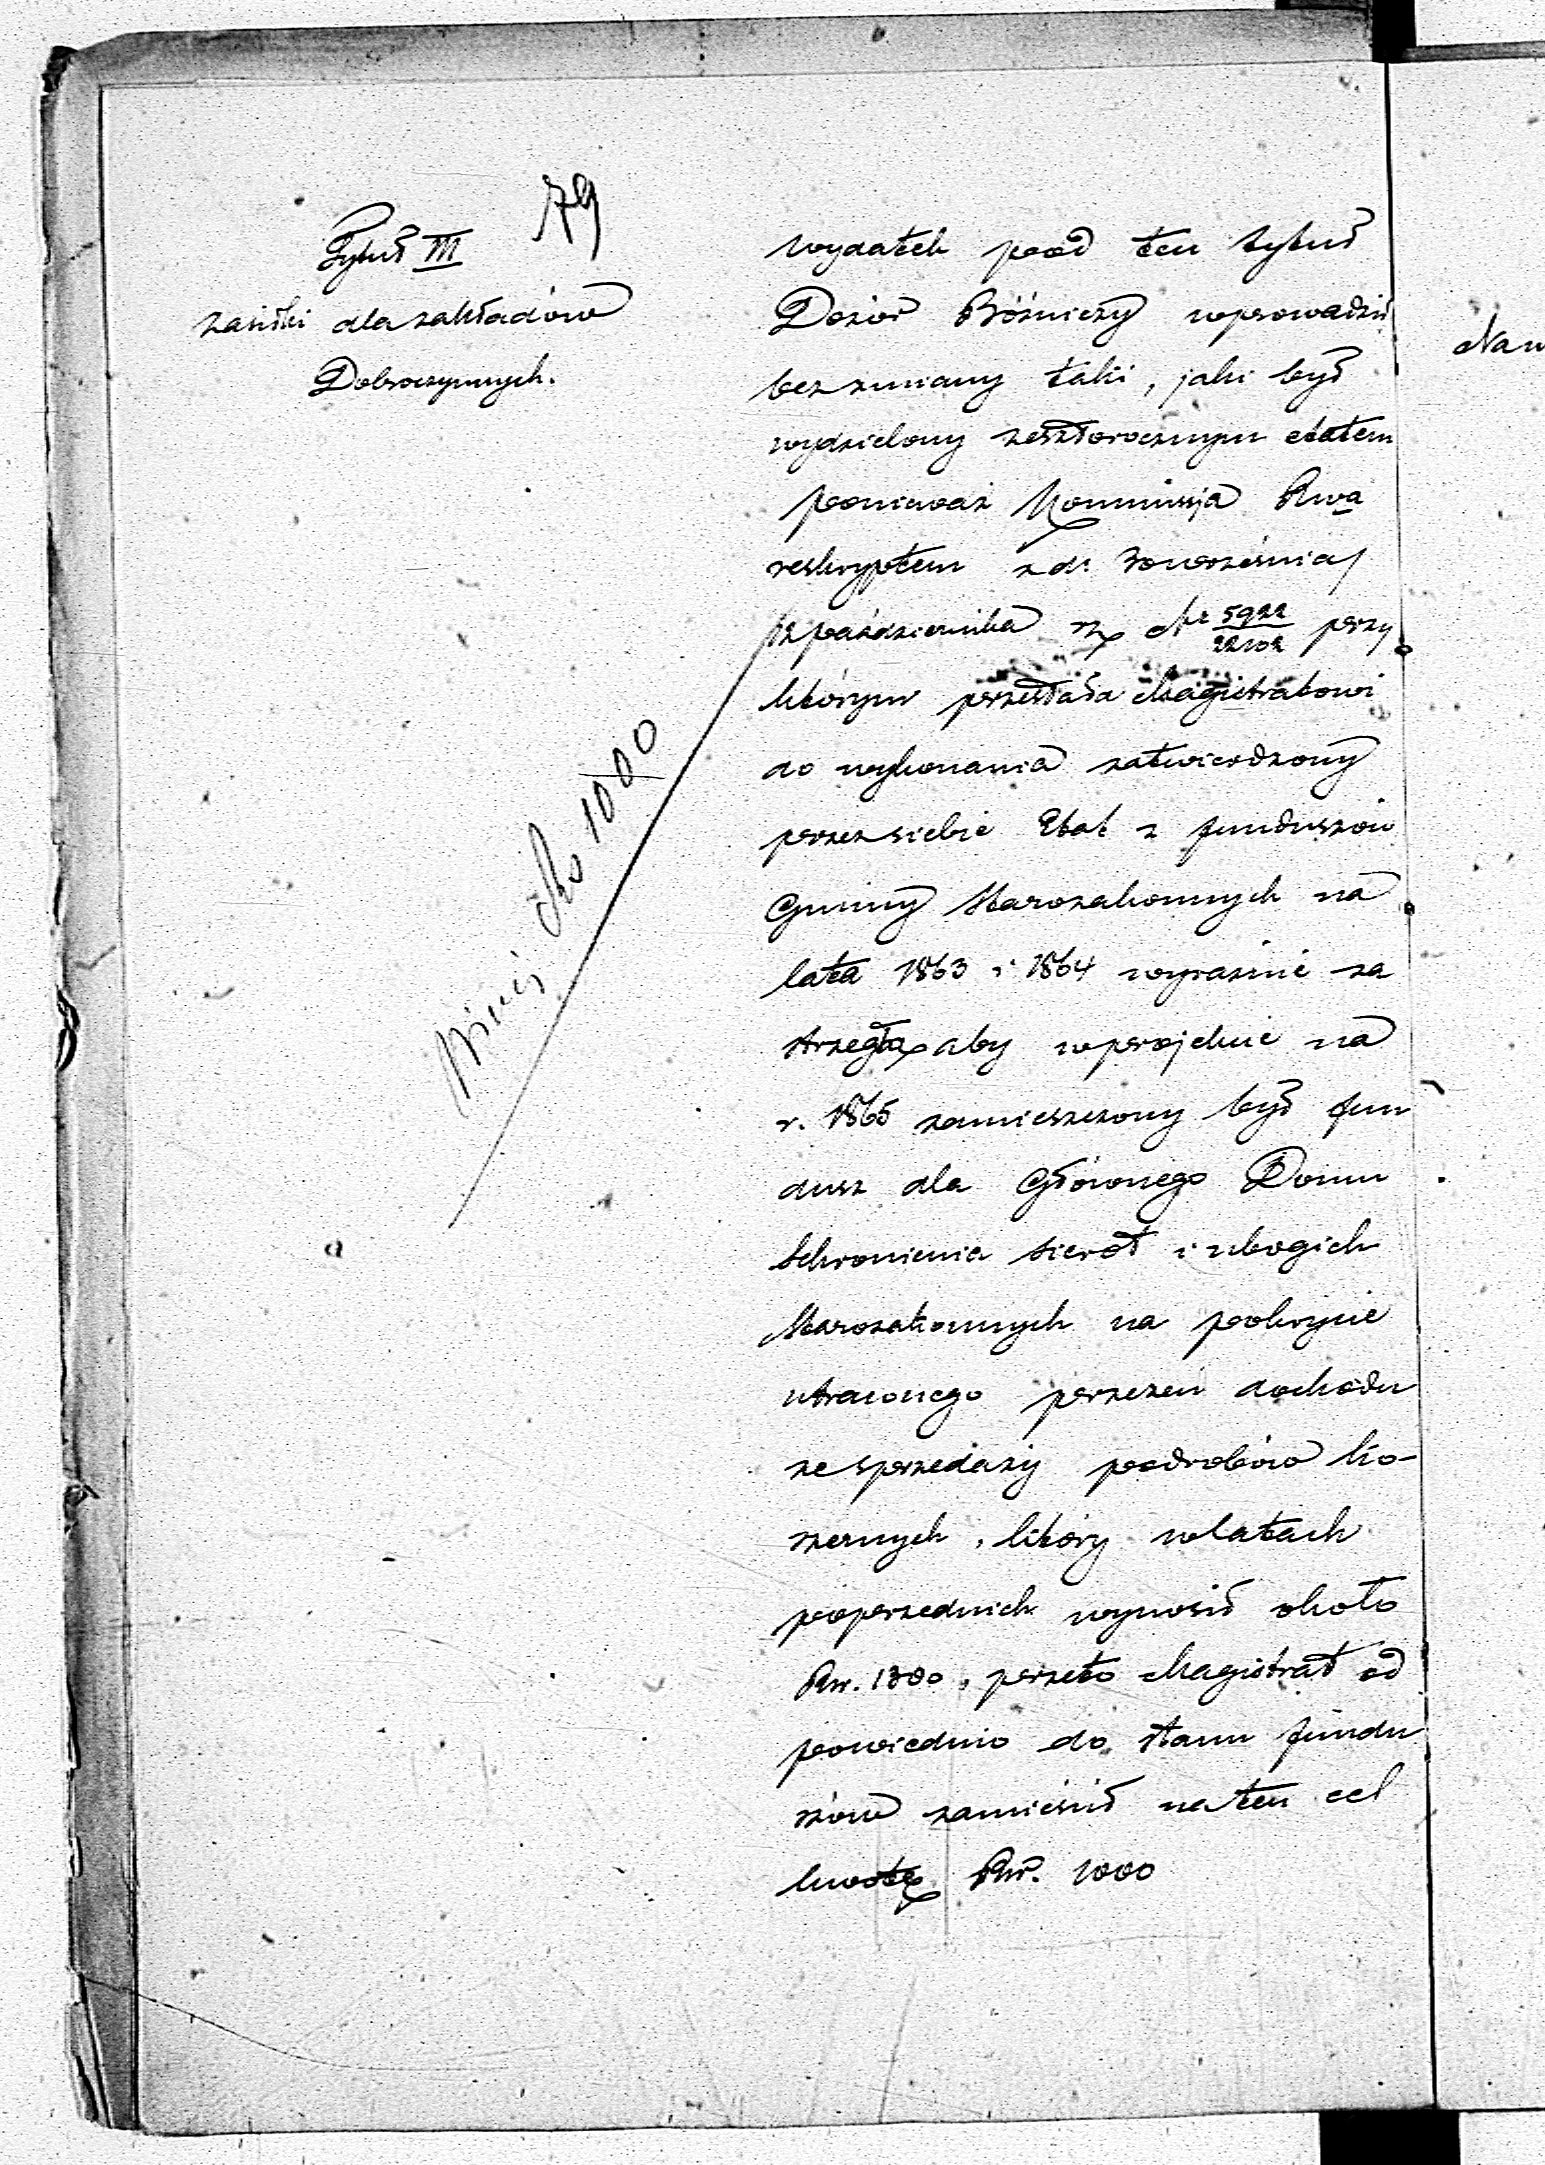 79
Tytuł III
zasiłki dla zakładów
Dobroczynnych.
wydatek pod ten tytuł
Dozór Bóźniczy wprowadził
bez zmiany taki, jaki był
wydzielony zeszłorocznym etatem
ponieważ Kommissja Rwa
reskryptem z d. 30 września/
12 października r. z. Nr 5922/22102 przy
którym przesłała Magistratowi
do wykonania zatwierdzony
przez siebie Etat z funduszów
Gminy Starozakonnych na
lata 1863 i 1864 wyraźnie za
strzegła aby w projekcie na
r. 1865 zamieszczony był fun
dusz dla Głównego Domu
Schronienia sierot i ubogich
Starozakonnych na pokrycie
utraconego przezeń dochodu
ze sprzedaży podrobów ko-
szernych, który w latach
poprzednich wynosił około
Rsr. 1300, przeto Magistrat od
powiednio do stanu fundu
szów zamieścił na ten cel
kwotę Rsr. 1000
1000
Naw